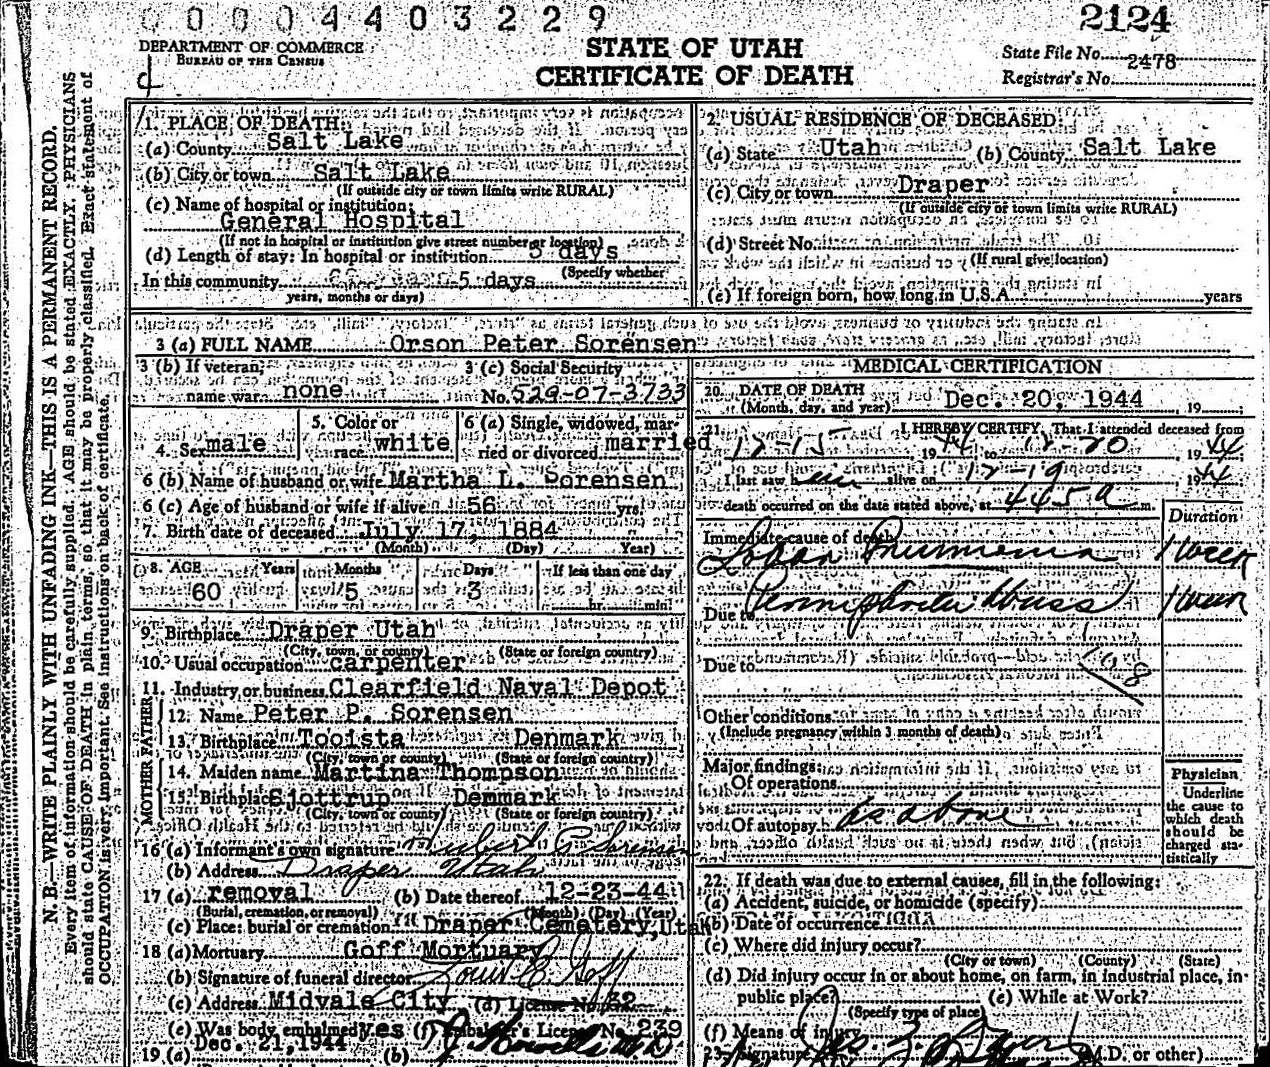 0 0 0 4 4 0 3 2 2 9
2124
DEPARTMENT OF COMMERCE
BUREAU OF THE CENSUS
STATE OF UTAH
CERTIFICATE OF DEATH
State File No. 2478
Registrar's No.
N. B.—WRITE PLAINLY WITH UNFADING INK—THIS IS A PERMANENT RECORD.
Every item of information should be carefully supplied. AGE should be stated EXACTLY. PHYSICIANS
should state CAUSE OF DEATH in plain terms, so that it may be properly classified. Exact statement of
OCCUPATION is very important. See instructions on back of certificate.
1. PLACE OF DEATH:
(a) County Salt Lake
(b) City or town Salt Lake
(If outside city or town limits write RURAL)
(c) Name of hospital or institution:
General Hospital
(If not in hospital or institution give street number or location)
(d) Length of stay: In hospital or institution 5 days
(Specify whether
In this community 5 days
years, months or days)
2. USUAL RESIDENCE OF DECEASED:
(a) State Utah (b) County Salt Lake
(c) City or town Draper
(If outside city or town limits write RURAL)
(d) Street No.
(If rural give location)
(e) If foreign born, how long in U.S.A. years
3 (a) FULL NAME Orson Peter Sorensen
3 (b) If veteran, name war none
3 (c) Social Security No. 529-07-3733
4. Sex male
5. Color or race white
6 (a) Single, widowed, married or divorced married
6 (b) Name of husband or wife Martha L. Sorensen
6 (c) Age of husband or wife if alive 56 yrs.
7. Birth date of deceased July 17, 1884
(Month) (Day) (Year)
8. AGE Years Months Days If less than one day
60 5 3 hr. min.
9. Birthplace Draper Utah
(City, town, or county) (State or foreign country)
10. Usual occupation carpenter
11. Industry or business Clearfield Naval Depot
FATHER
12. Name Peter P. Sorensen
13. Birthplace Tooista Denmark
(City, town or county) (State or foreign country)
MOTHER
14. Maiden name Martina Thompson
15. Birthplace Sjottrup Denmark
(City, town or county) (State or foreign country)
16 (a) Informant's own signature Sorensen
(b) Address Draper Utah
17 (a) removal (b) Date thereof 12-23-44
(Burial, cremation, or removal) (Month) (Day) (Year)
(c) Place: burial or cremation Draper Cemetery, Utah
18 (a) Mortuary Goff Mortuary
(b) Signature of funeral director Goff
(c) Address Midvale City (d) License No. 32
(e) Was body embalmed yes (f) Embalmer's License No. 239
19 (a) Dec. 21, 1944 (b) M D
MEDICAL CERTIFICATION
20. DATE OF DEATH
(Month, day, and year) Dec. 20, 1944, 19
21. I HEREBY CERTIFY, That I attended deceased from
12-15 1944 to 12-20 1944
I last saw him alive on 12-19 1944
death occurred on the date stated above, at 4 45 a m.
Duration
Immediate cause of death
Lobar Pneumonia 1 week
Due to 1 week
Due to
108
Other conditions
(Include pregnancy within 3 months of death)
Major findings:
Of operations
Of autopsy As above
Physician
Underline
the cause to
which death
should be
charged sta-
tistically
22. If death was due to external causes, fill in the following:
(a) Accident, suicide, or homicide (specify)
(b) Date of occurrence
(c) Where did injury occur?
(City or town) (County) (State)
(d) Did injury occur in or about home, on farm, in industrial place, in
public place? (e) While at Work?
(Specify type of place)
(f) Means of injury
23. Signature (M.D. or other)